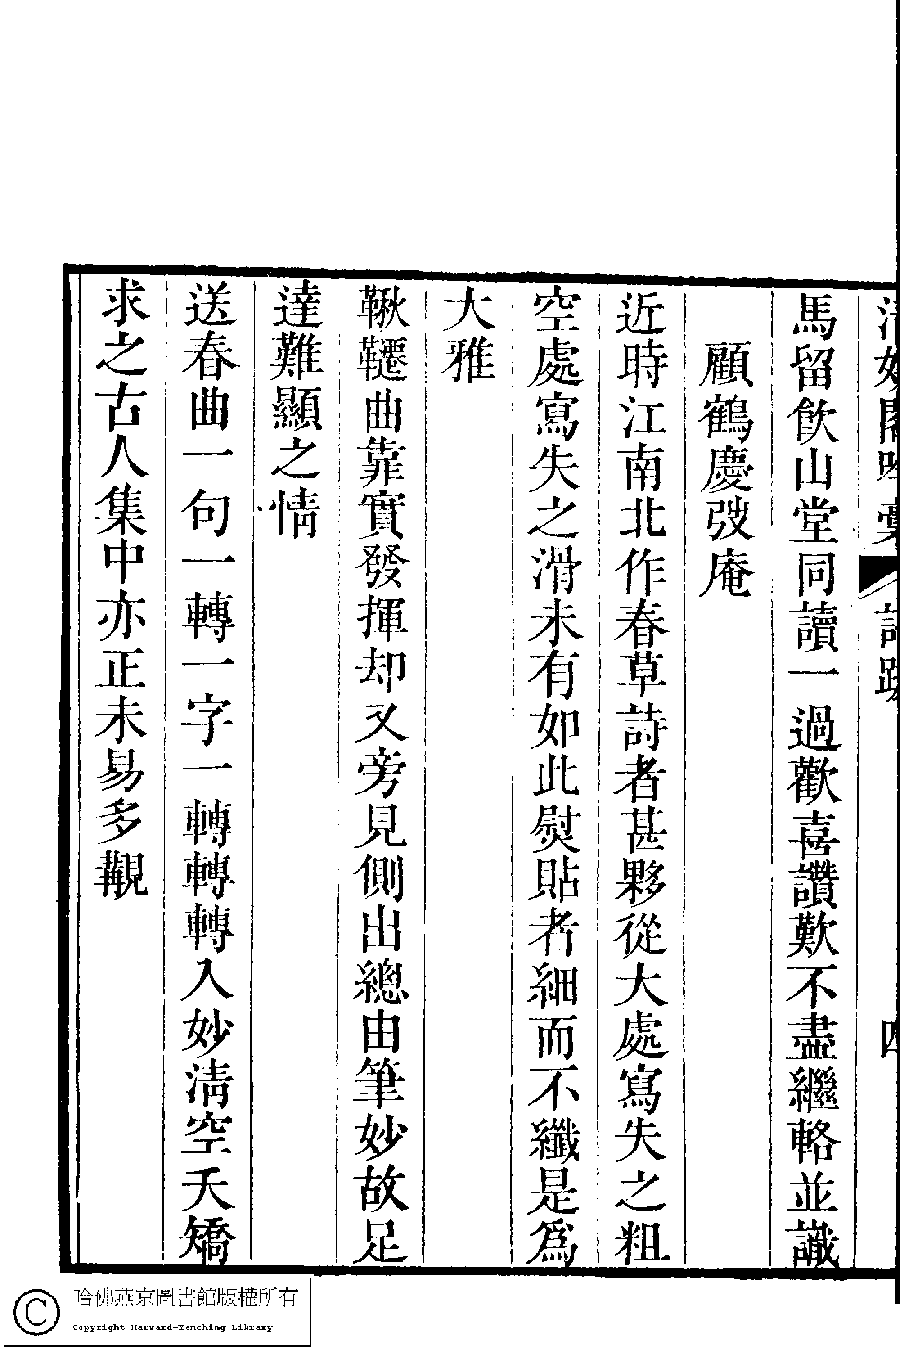 馬留飲山堂同讀一過歡喜讚歎不盡繼輅並識
顧鶴慶弢庵
近時江南北作春草詩者甚夥從大處寫失之粗
空處寫失之滑未有如此熨貼者細而不纖是為
大雅
鞦韆曲靠實發揮却又旁見側出總由筆妙故足
達難顯之情
送春曲一句一轉一字一轉轉轉入妙清空夭矯
求之古人集中亦正未易多覯
哈佛燕京圖書館版權所有
Copyright Harvard-Yenching Library